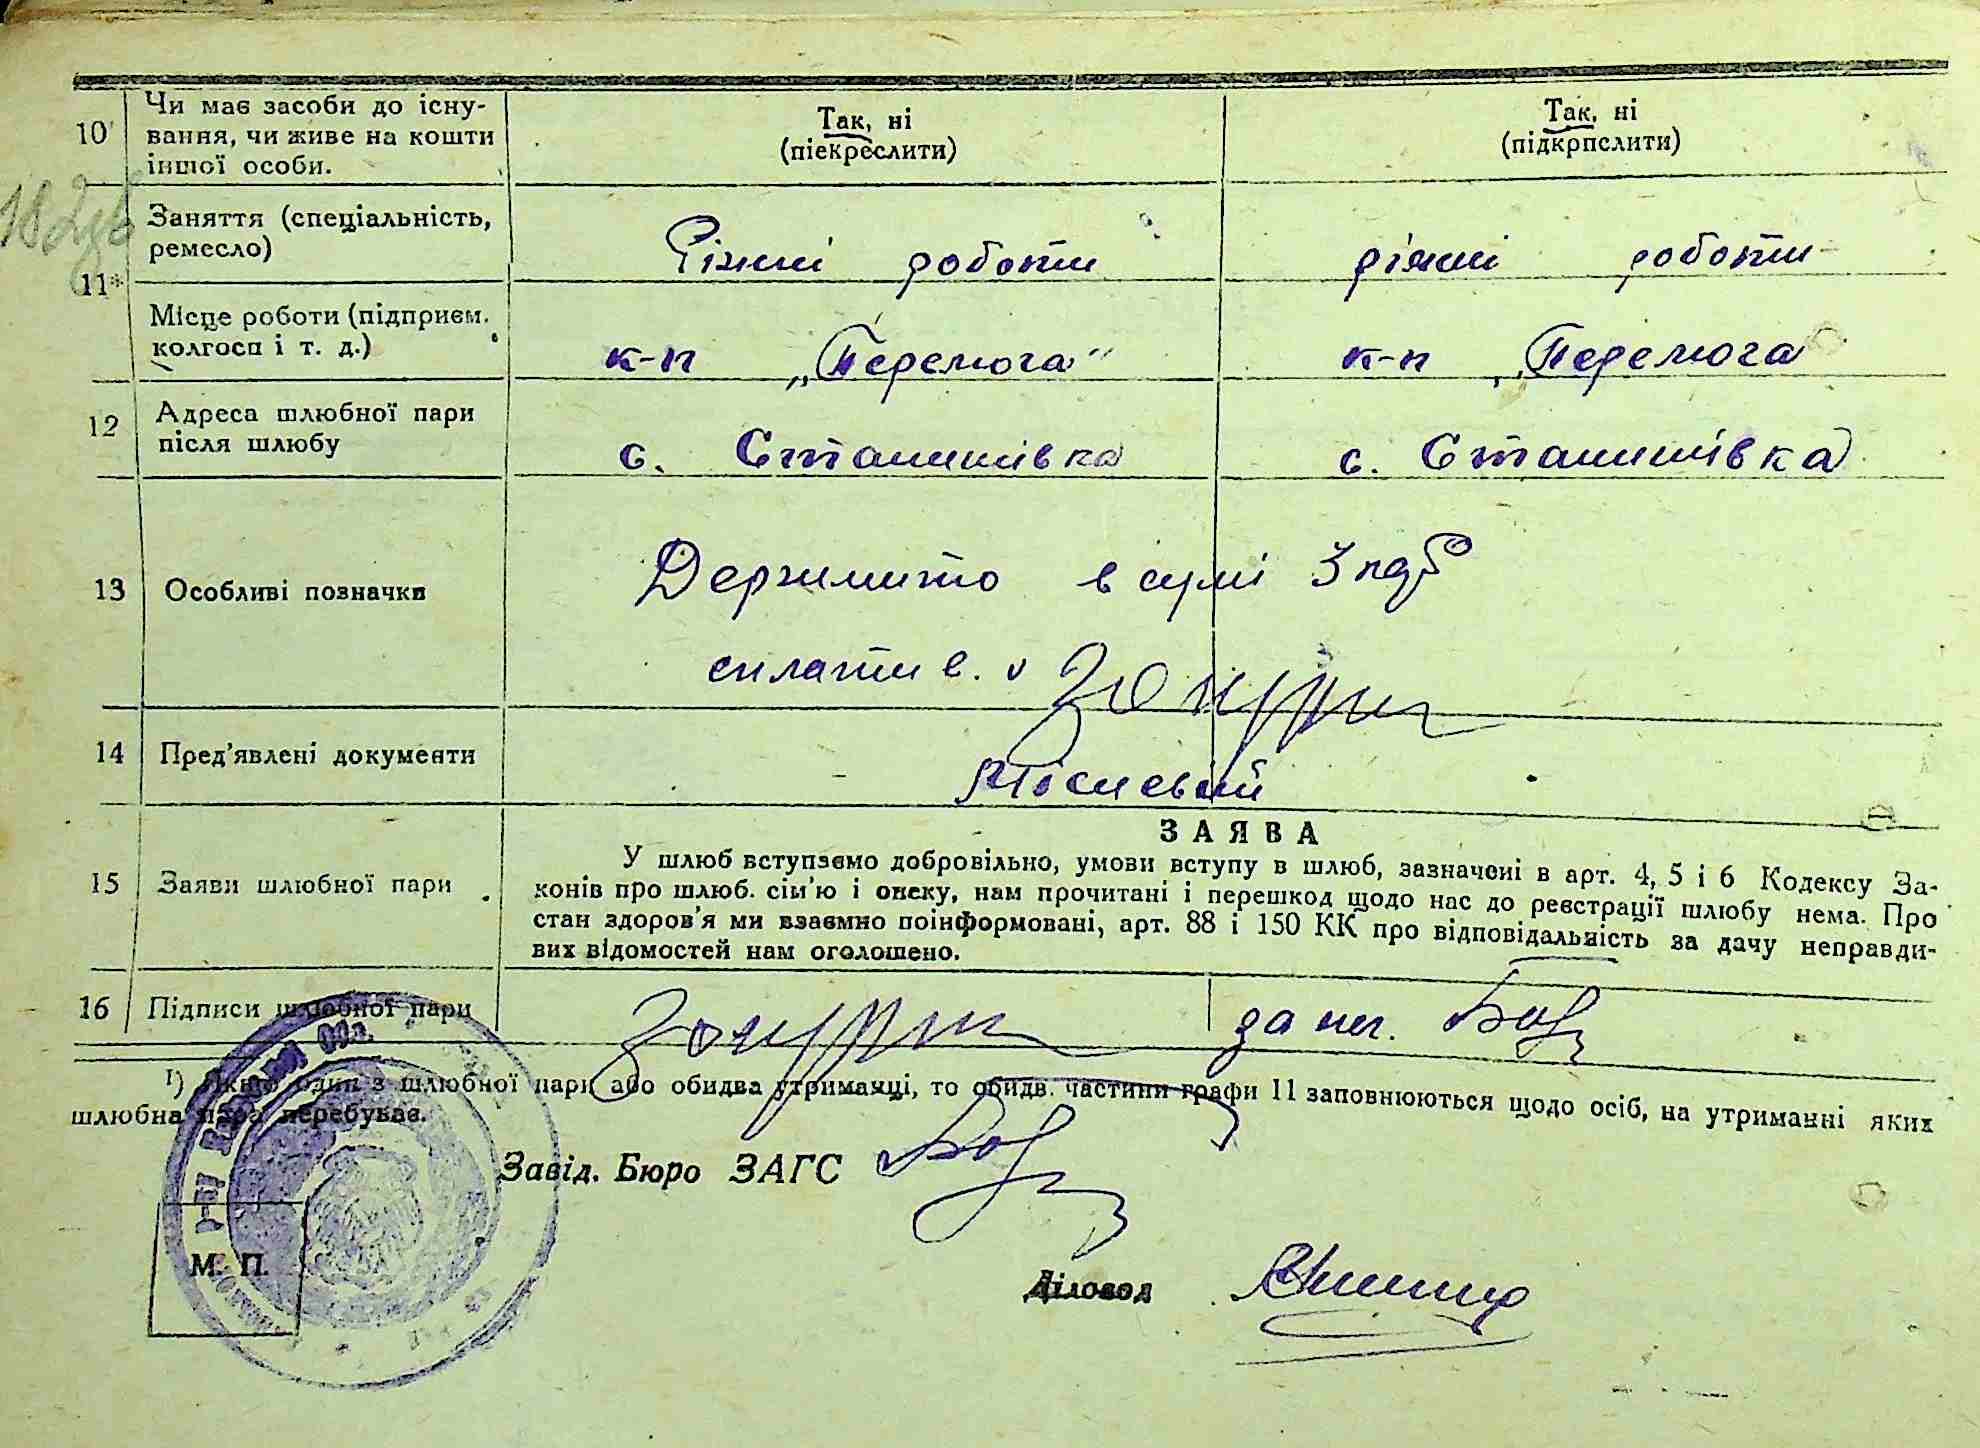 10
Чи має засоби до існу-
вання, чи живе на кошти
іншої особи.
Так, ні
(піекреслити)
Так, ні
(підкрпслити)
11*
Заняття (спеціальність,
ремесло)
Різні роботи
різні роботи
Місце роботи (підприєм.
колгосп і т. д.)
к-п „Перемога"
к-п „Перемога
12
Адреса шлюбної пари
після шлюбу
с. Станишівка
с. Станишівка
13
Особливі позначки
Держмито в сумі 3 руб
сплатив.
14
Пред'явлені документи
15
Заяви шлюбної пари
ЗАЯВА
У шлюб вступзємо добровільно, умови вступу в шлюб, зазначені в арт. 4, 5 і 6 Кодексу За-
конів про шлюб. сім'ю і опеку, нам прочитані і перешкод щодо нас до реєстрації шлюбу нема. Про
стан здоров'я ми взаємно поінформовані, арт. 88 і 150 КК про відповідальність за дачу неправди-
вих відомостей нам оголошено.
16
Підписи шлюбної пари
за нег.
¹) Якщо один з шлюбної пари або обидва утриманці, то обидв. частини графи 11 заповнюються щодо осіб, на утриманні яких
шлюбна пара перебуває.
Завід. Бюро ЗАГС
М. П.
Діловод